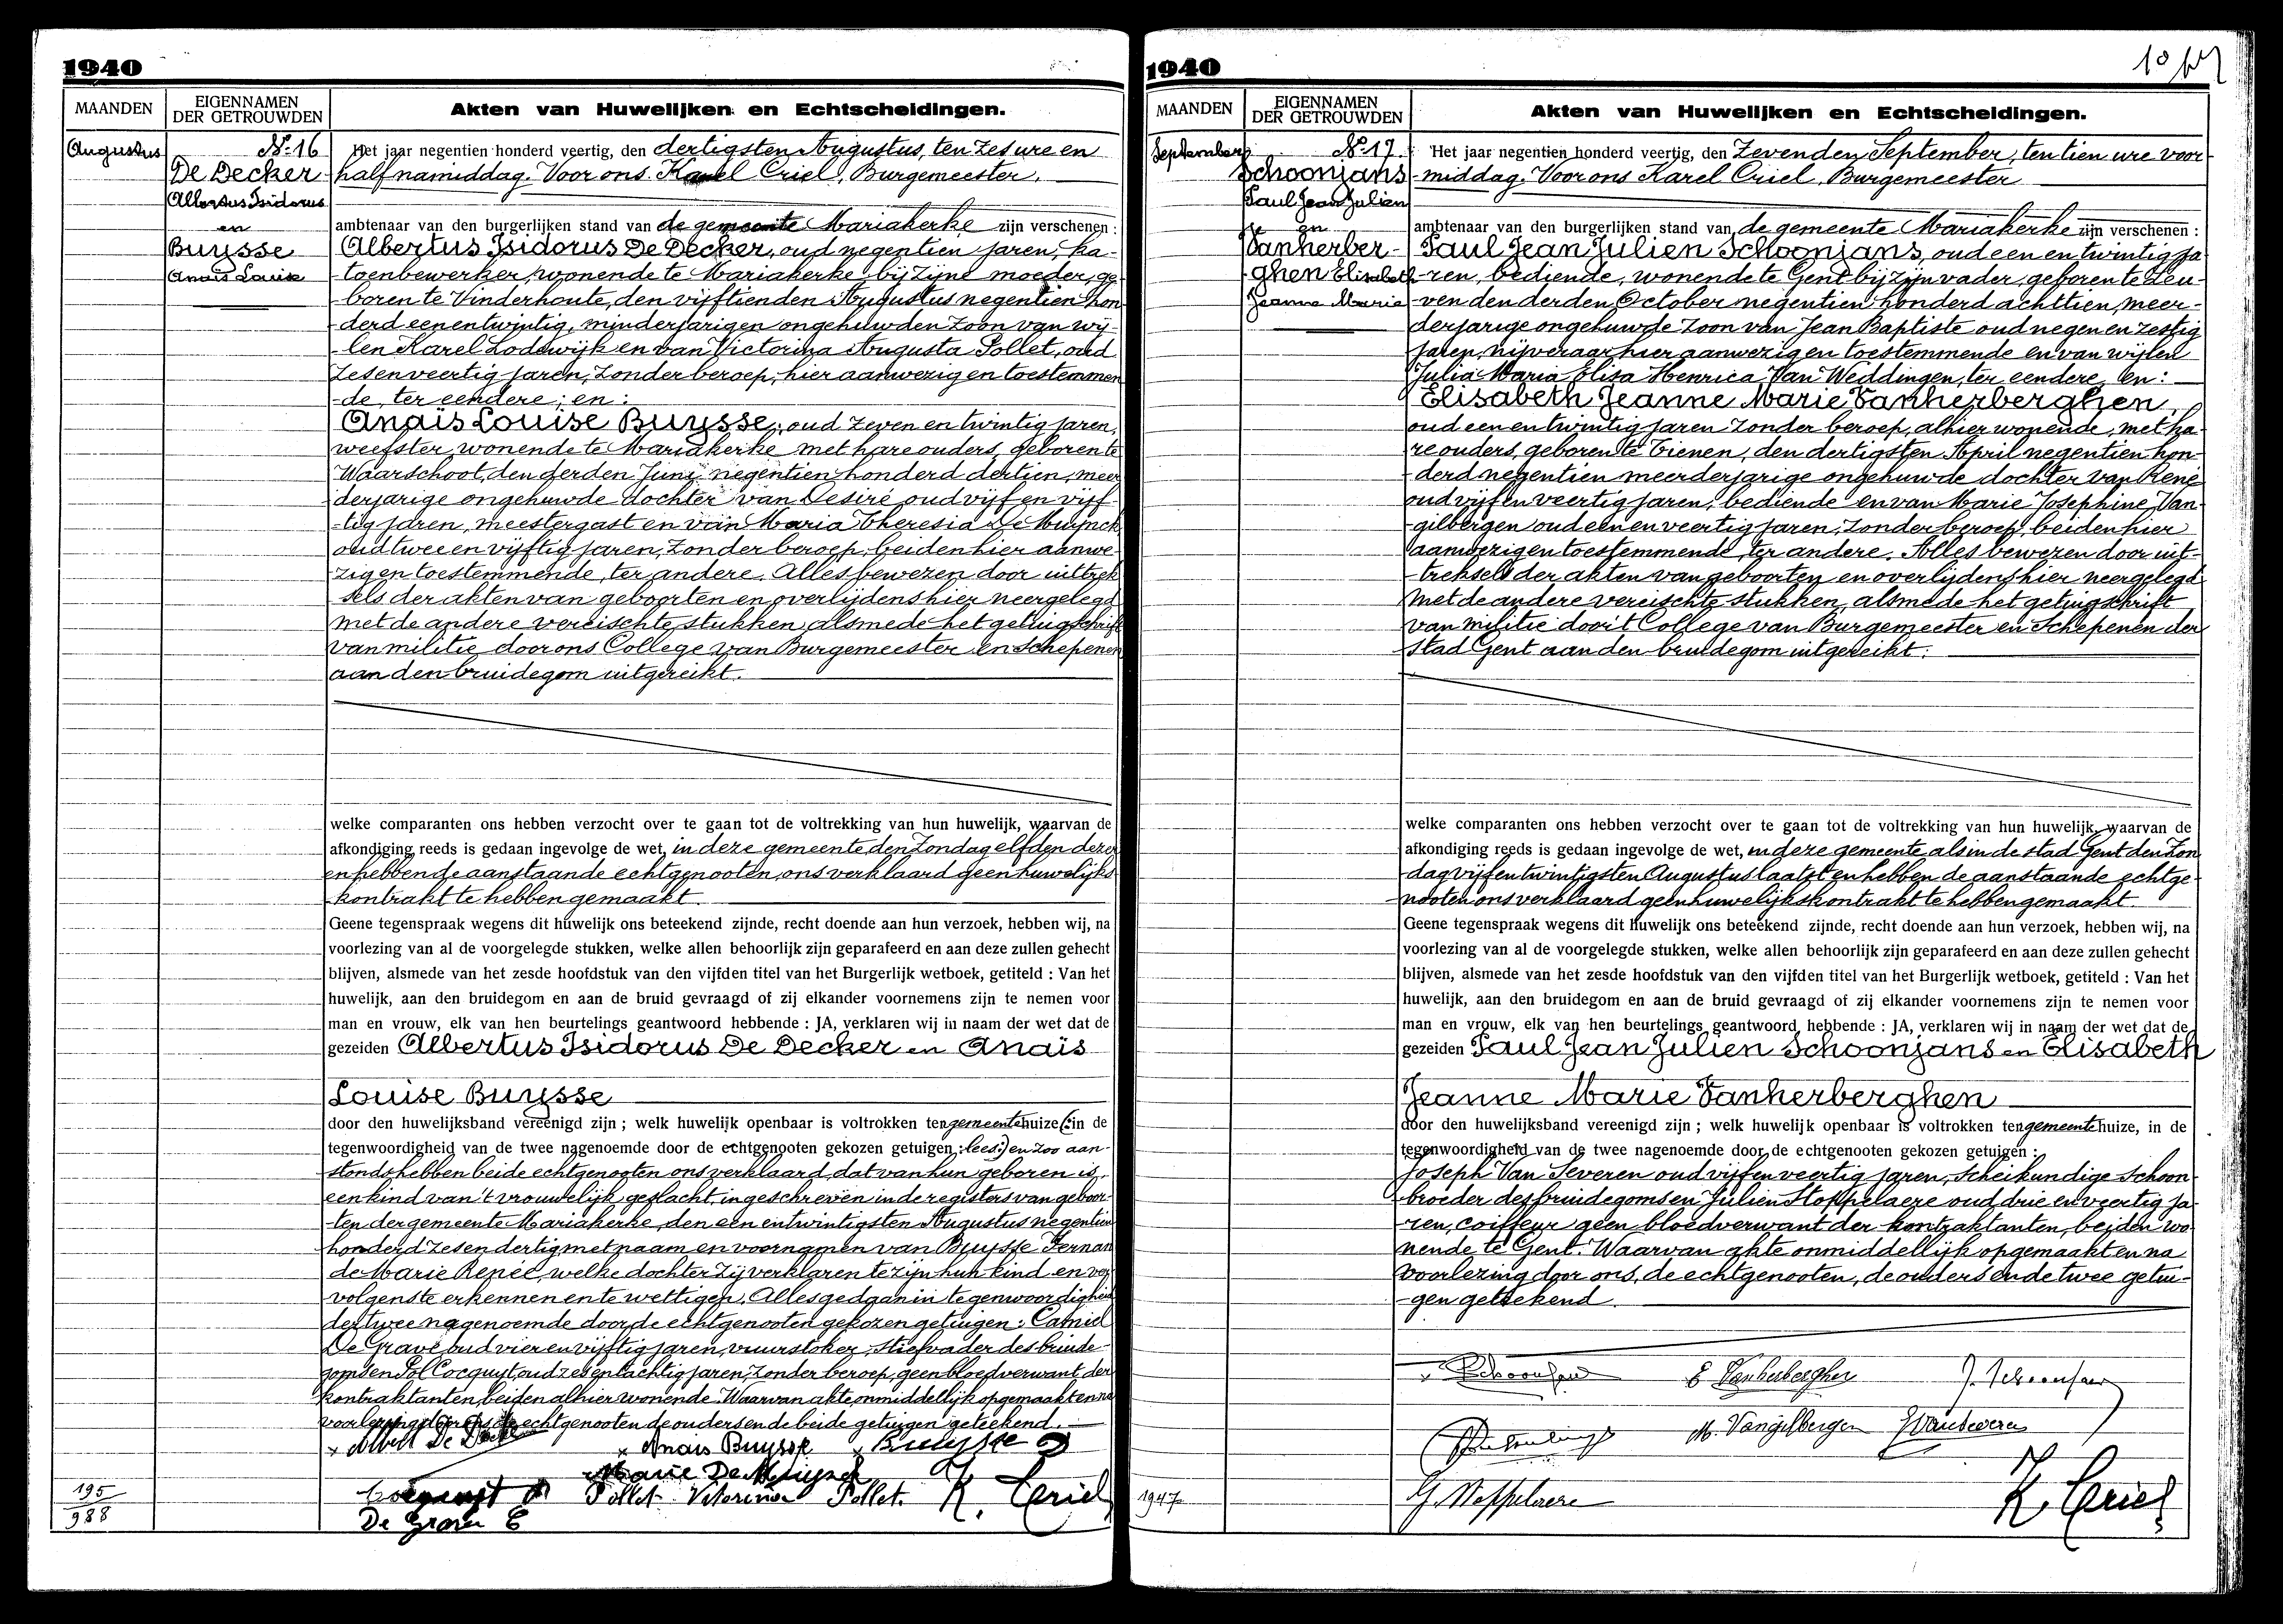 1940
MAANDEN
EIGENNAMEN
DER GETROUWDEN
Akten van Huwelijken en Echtscheidingen.
Augustus
N° 16
De Decker
Albertus Isidorus
en
Buysse
Anaïs Louise
Het jaar negentien honderd veertig, den dertigsten Augustus, ten zes ure en
half namiddag. Voor ons Karel Criel, Burgemeester,
ambtenaar van den burgerlijken stand van de gemeente Mariakerke zijn verschenen :
Albertus Isidorus De Decker, oud negentien jaren, ka-
toenbewerker, wonende te Mariakerke bij zijne moeder, ge-
boren te Vinderhoute, den vijftienden Augustus negentien hon
derd eenentwintig, minderjarigen ongehuwden zoon van wij-
len Karel Lodewijk en van Victorina Augusta Pollet, oud
zesenveertig jaren, zonder beroep, hier aanwezig en toestemmen
de, ter eendere; en:
Anaïs Louise Buysse, oud zeven en twintig jaren,
weefster, wonende te Mariakerke met hare ouders, geboren te
Waarschoot, den derden Juni negentien honderd dertien, meer
derjarige ongehuwde dochter van Desiré oud vijf en vijf-
tig jaren, meestergast en van Maria Theresia De Muynck
oud twee en vijftig jaren, zonder beroep, beiden hier aanwe-
zig en toestemmende, ter andere. Alles bewezen door uittrek
sels der akten van geboorten en overlijdens hier neergelegd
met de andere vereischte stukken alsmede het getuigschrift
van militie door ons College van Burgemeester en Schepenen
aan den bruidegom uitgereikt.
welke comparanten ons hebben verzocht over te gaan tot de voltrekking van hun huwelijk, waarvan de
afkondiging reeds is gedaan ingevolge de wet, in deze gemeente den Zondag elfden dezer
en hebben de aanstaande echtgenooten, ons verklaard geen huwelijks
kontrakt te hebben gemaakt.
Geene tegenspraak wegens dit huwelijk ons beteekend zijnde, recht doende aan hun verzoek, hebben wij, na
voorlezing van al de voorgelegde stukken, welke allen behoorlijk zijn geparafeerd en aan deze zullen gehecht
blijven, alsmede van het zesde hoofdstuk van den vijfden titel van het Burgerlijk wetboek, getiteld : Van het
huwelijk, aan den bruidegom en aan de bruid gevraagd of zij elkander voornemens zijn te nemen voor
man en vrouw, elk van hen beurtelings geantwoord hebbende : JA, verklaren wij in naam der wet dat de
gezeiden Albertus Isidorus De Decker en Anaïs
Louise Buysse
door den huwelijksband vereenigd zijn ; welk huwelijk openbaar is voltrokken ten gemeentehuize (: in de
tegenwoordigheid van de twee nagenoemde door de echtgenooten gekozen getuigen : lees:) en zoo aan-
stonds hebben beide echtgenooten ons verklaard, dat van hun geboren is,
een kind van 't vrouwelijk geslacht, ingeschreven in de registers van geboor-
ten der gemeente Mariakerke, den een entwintigsten Augustus negentien
honderd zesendertig met naam en voornamen van Buysse Fernan
de Marie Renée, welke dochter zij verklaren te zijn hun kind en ver
volgens te erkennen en te wettigen. Alles gedaan in tegenwoordigheid
der twee nagenoemde door de echtgenooten gekozen getuigen: Camiel
De Grave oud vier en vijftig jaren, vuurstoker, stiefvader des bruide-
goms en Pol Cocquyt, oud zesentachtig jaren, zonder beroep, geen bloedverwant der
kontraktanten, beiden alhier wonende. Waarvan akte, onmiddellijk opgemaakt en na
voorlezing door ons de echtgenooten de ouders en de beide getuigen geteekend.
x Albert De Decker x Anaïs Buysse x Buysse D
Marie De Muynck
Cocquyt Pollet Vitorina Pollet. K. Criel
De Grave C
195
988
1940
MAANDEN
EIGENNAMEN
DER GETROUWDEN
Akten van Huwelijken en Echtscheidingen.
September
N° 17
Schoonjans
Paul Jean Julien
en
Vanherber-
ghen Elisabeth
Jeanne Marie
Het jaar negentien honderd veertig, den Zevenden September, ten tien ure voor
middag. Voor ons Karel Criel, Burgemeester
ambtenaar van den burgerlijken stand van de gemeente Mariakerke zijn verschenen :
Paul Jean Julien Schoonjans, oud een en twintig ja
ren, bediende, wonende te Gent bij zijn vader, geboren te Leu-
ven den derden October negentien honderd achttien, meer-
derjarige ongehuwde zoon van Jean Baptiste oud negen en zestig
jaren, nijveraar hier aanwezig en toestemmende en van wijlen
Julia Maria Elisa Henrica Van Weddingen, ter eendere, en:
Elisabeth Jeanne Marie Vanherberghen,
oud een en twintig jaren zonder beroep, alhier wonende, met ha-
re ouders, geboren te Tienen, den dertigsten April negentien hon-
derd negentien meerderjarige ongehuwde dochter van René
oud vijf en veertig jaren, bediende en van Marie Josephine Van-
gilbergen oud een en veertig jaren, zonder beroep, beiden hier
aanwezig en toestemmende, ter andere. Alles bewezen door uit-
treksels der akten van geboorten en overlijdens hier neergelegd
met de andere vereischte stukken, alsmede het getuigschrift
van militie door 't College van Burgemeester en Schepenen der
stad Gent aan den bruidegom uitgereikt.
welke comparanten ons hebben verzocht over te gaan tot de voltrekking van hun huwelijk, waarvan de
afkondiging reeds is gedaan ingevolge de wet, in deze gemeente als in de stad Gent den Zon
dag vijfentwintigsten Augustus laatst en hebben de aanstaande echtge-
nooten ons verklaard geen huwelijkskontrakt te hebben gemaakt.
Geene tegenspraak wegens dit huwelijk ons beteekend zijnde, recht doende aan hun verzoek, hebben wij, na
voorlezing van al de voorgelegde stukken, welke allen behoorlijk zijn geparafeerd en aan deze zullen gehecht
blijven, alsmede van het zesde hoofdstuk van den vijfden titel van het Burgerlijk wetboek, getiteld : Van het
huwelijk, aan den bruidegom en aan de bruid gevraagd of zij elkander voornemens zijn te nemen voor
man en vrouw, elk van hen beurtelings geantwoord hebbende : JA, verklaren wij in naam der wet dat de
gezeiden Paul Jean Julien Schoonjans en Elisabeth
Jeanne Marie Vanherberghen
door den huwelijksband vereenigd zijn ; welk huwelijk openbaar is voltrokken ten gemeentehuize, in de
tegenwoordigheid van de twee nagenoemde door de echtgenooten gekozen getuigen :
Joseph Van Severen oud vijf en veertig jaren, scheikundige schoon
broeder des bruidegoms en Julien Stoppelaere oud drie en veertig ja
ren, coiffeur geen bloedverwant der kontraktanten, beiden wo-
nende te Gent. Waarvan akte onmiddellijk opgemaakt en na
voorlezing door ons, de echtgenooten, de ouders en de twee getui-
gen geteekend.
E Vanherberghen J. Schoonjans
M. Vangilbergen JVanseveren
K. Criel
1947